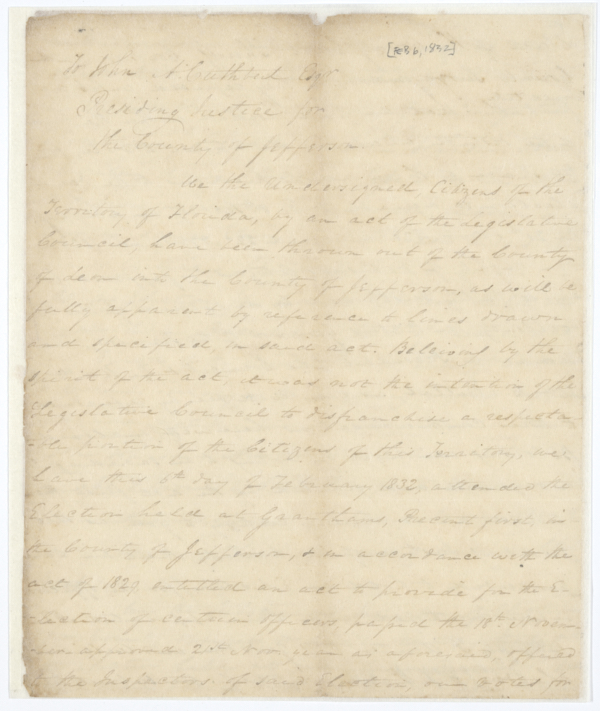 [Feb 6, 1832]
To John A. Cuthbert Esqr
Presiding Justice for
the County of Jefferson.
We the undersigned Citizens of the
Territory of Florida, by an act of the Legislative
Council, have been thrown out of the County
of Leon into the County of Jefferson, as will be
fully apparent by reference to lines drawn
and specified, in said act. Beleiving by the
spirit of the act, it was not the intention of the
Legislative Council to disfranchise a respecta-
-ble portion of the Citizens of this Territory, we
have this 6th day of February 1832, attended the
Election held at Granthams, Precinct first, in
the County of Jefferson, & in accordance with the
act of 1829, entitled an act to provide for the E-
-lection of certain officers, passed the 18th Novem-
-ber approved 21st Nov, year as aforesaid, offered
to the Inspectors of said Election, our votes for